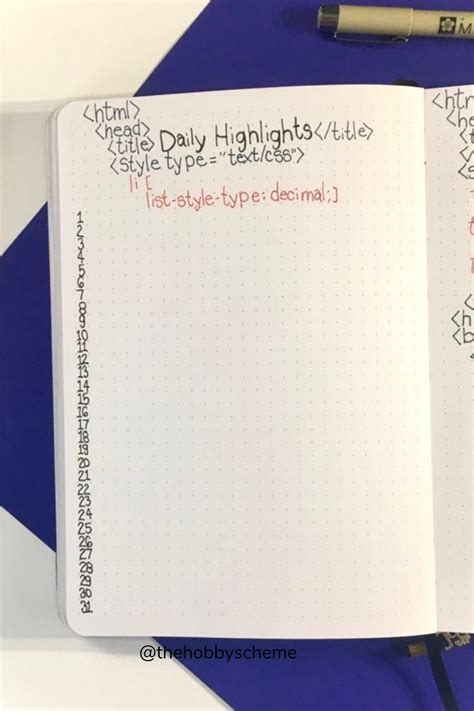 <html>
<head>
<title> Daily Highlights </title>
<style type="text/css">
li [
list-style-type: decimal;]
1
2
3
4
5
6
7
8
9
10
11
12
13
14
15
16
17
18
19
20
21
22
23
24
25
26
27
28
29
30
31
@thehobbyscheme